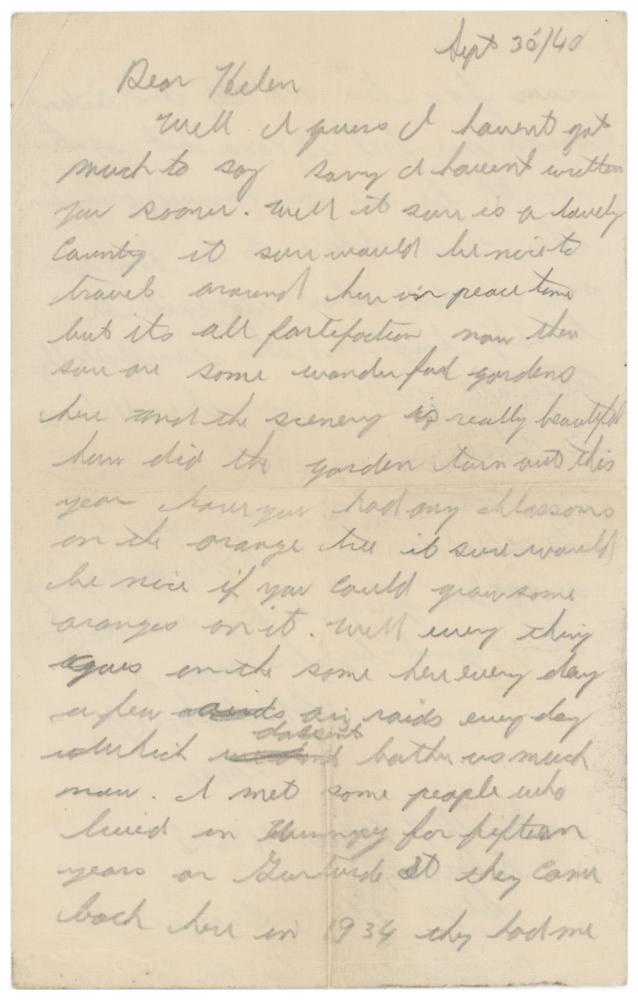 Sept 30/40
Dear Helen
Well I guess I havent got
much to say sorry I havent written
you sooner. Well it sure is a lovely
Country it sure would be nice to
travel around here in peace time
but its all fortifaction now ther
sure are some wonderful gardens
here and the scenery is really beautiful
how did the garden turn out this
year have you had any blossoms
on the orange tree it sure would
be nice if you could grow some
oranges on it. Well every thing
goes on the same here every day
a few air raids every day
which dossent bother us much
now. I met some people who
lived in for fifteen
years on St they came
back here in 1934 they had me